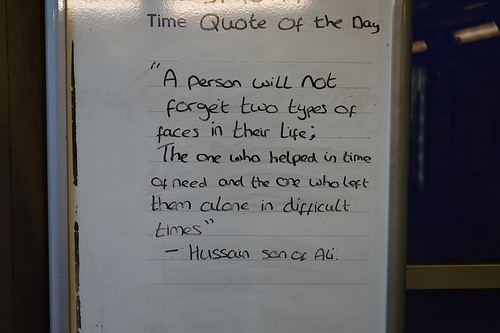 Time Quote of the Day
"A person will not
forget two types of
faces in their life;
The one who helped in time
of need and the one who left
them alone in difficult
times"
– Hussain son of Ali.